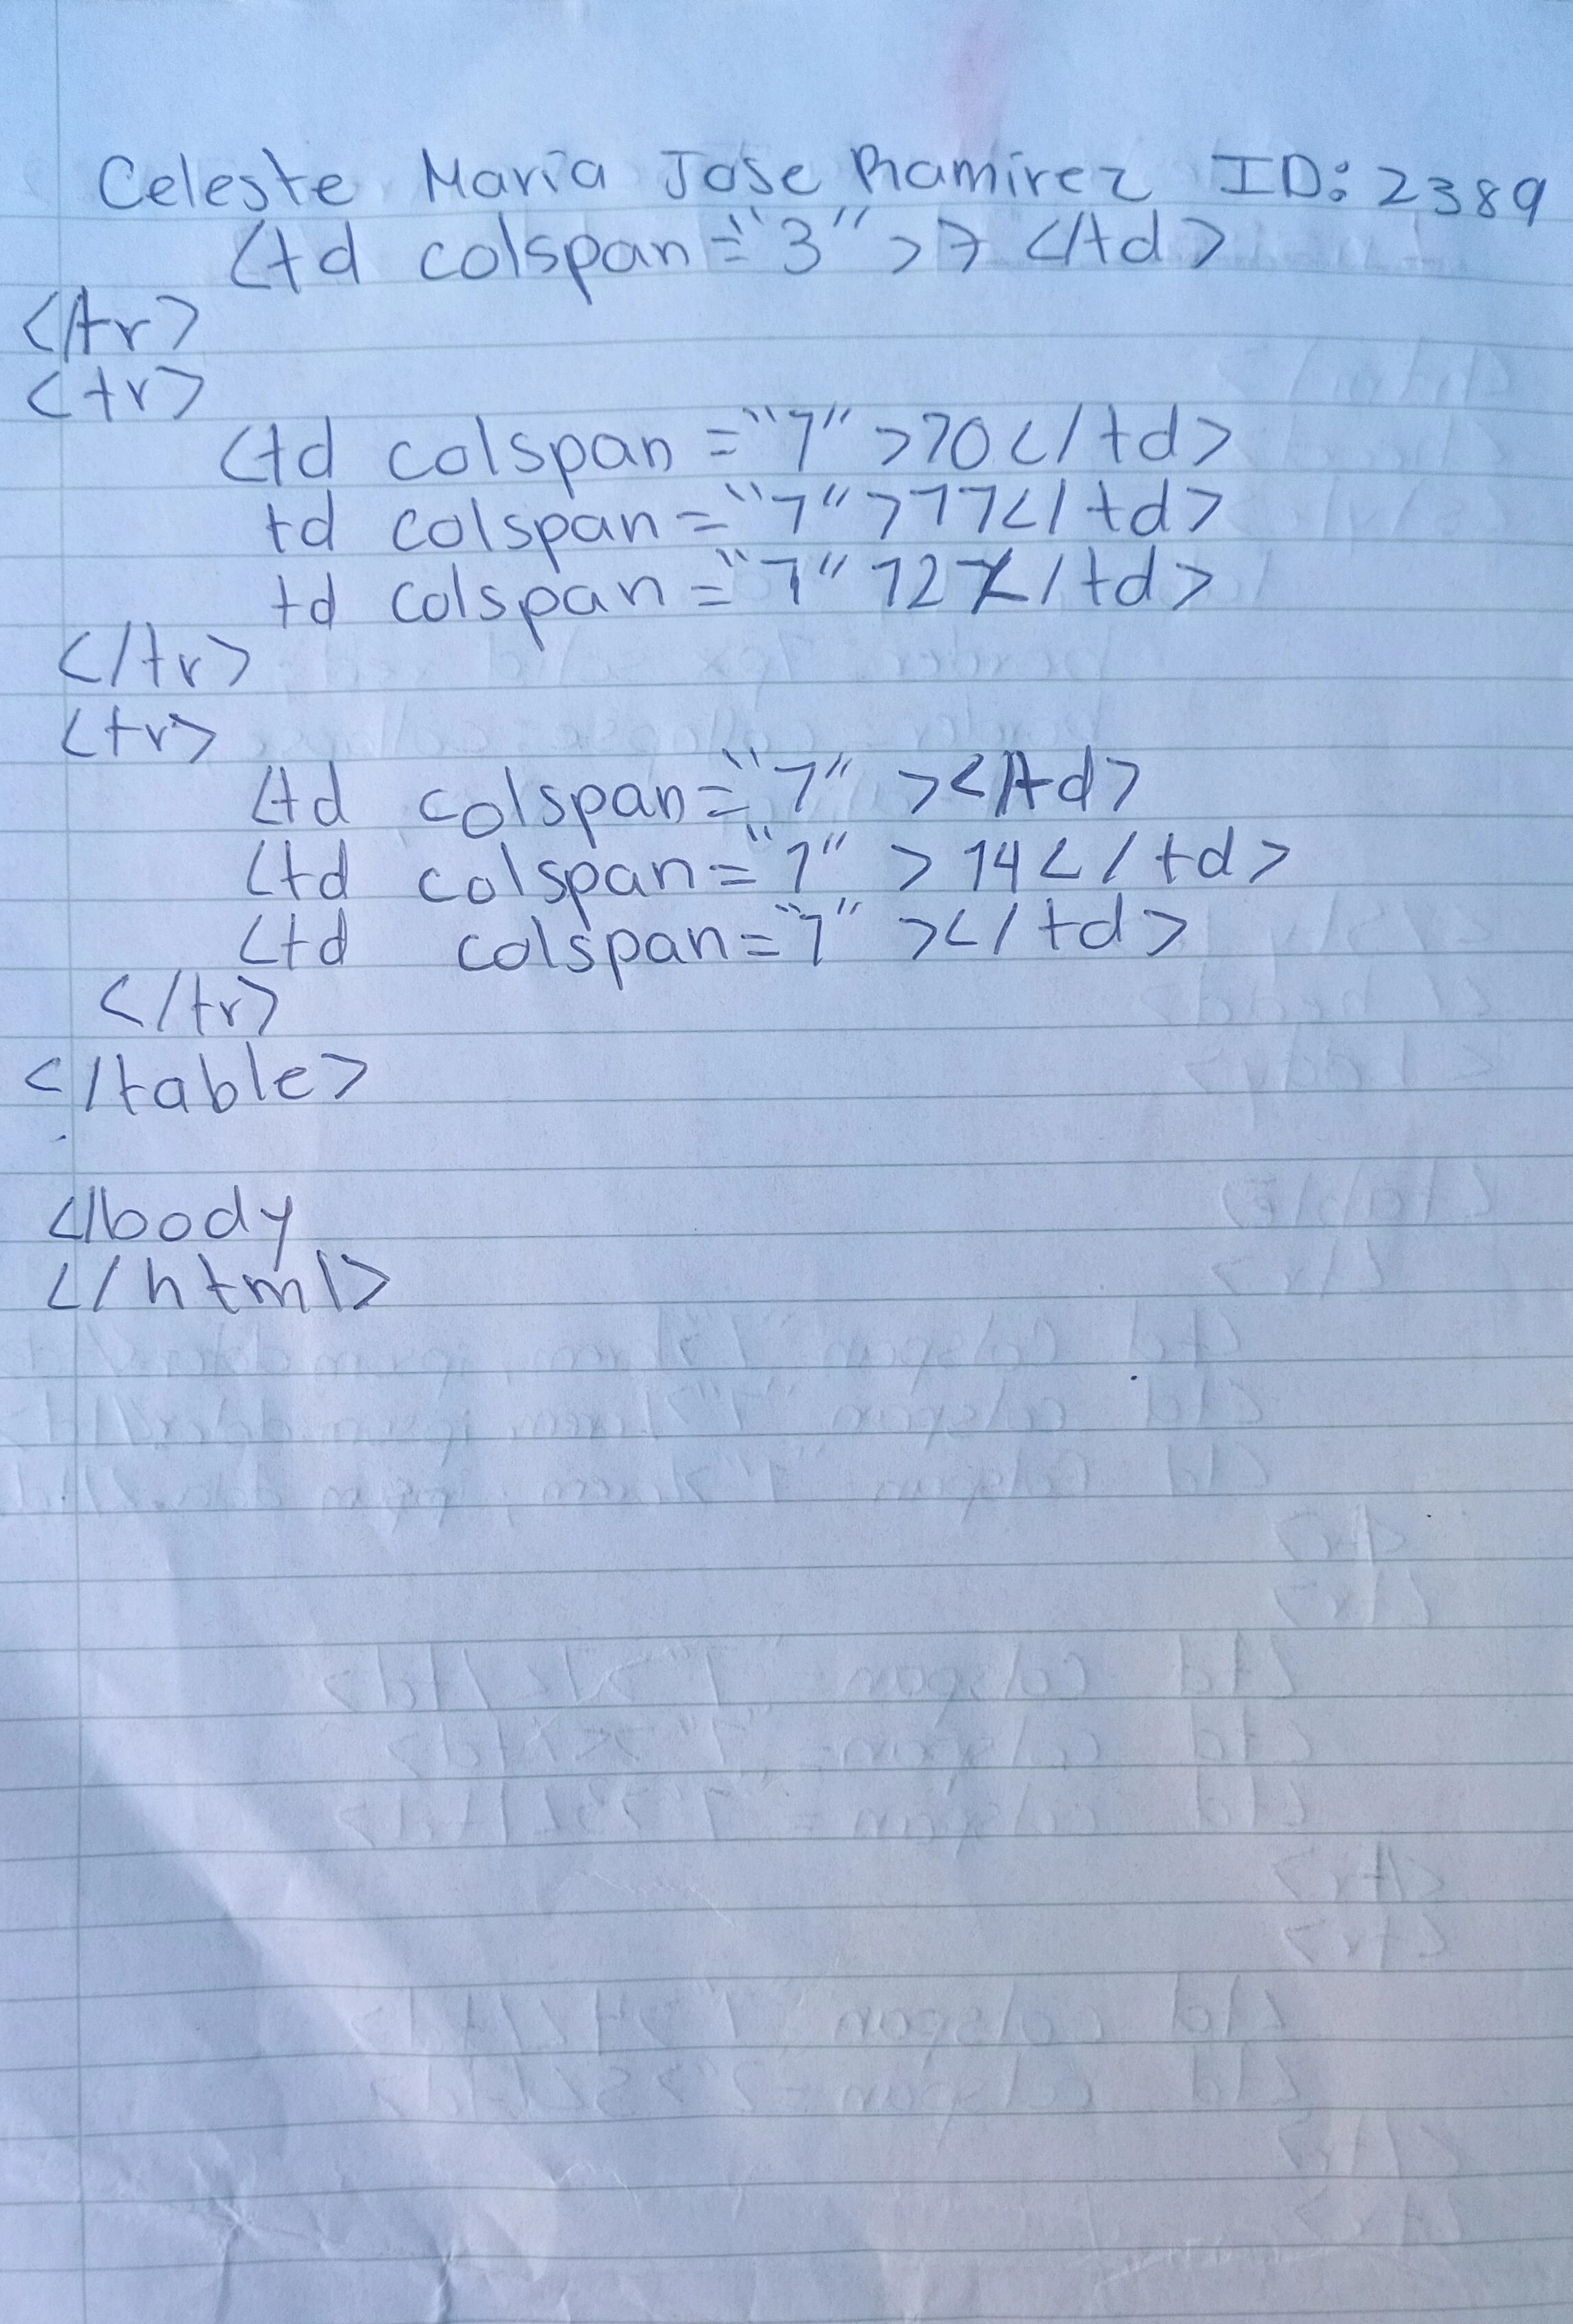 Celeste María Jose Ramirez ID: 2389
<td colspan="3">7 </td>
</tr>
<tr>
<td colspan="1">10</td>
td colspan="1">11</td>
td colspan="1" 12</td>
</tr>
<tr>
<td colspan="1"></td>
<td colspan="1">14</td>
<td colspan="1"></td>
</tr>
</table>
</body
</html>